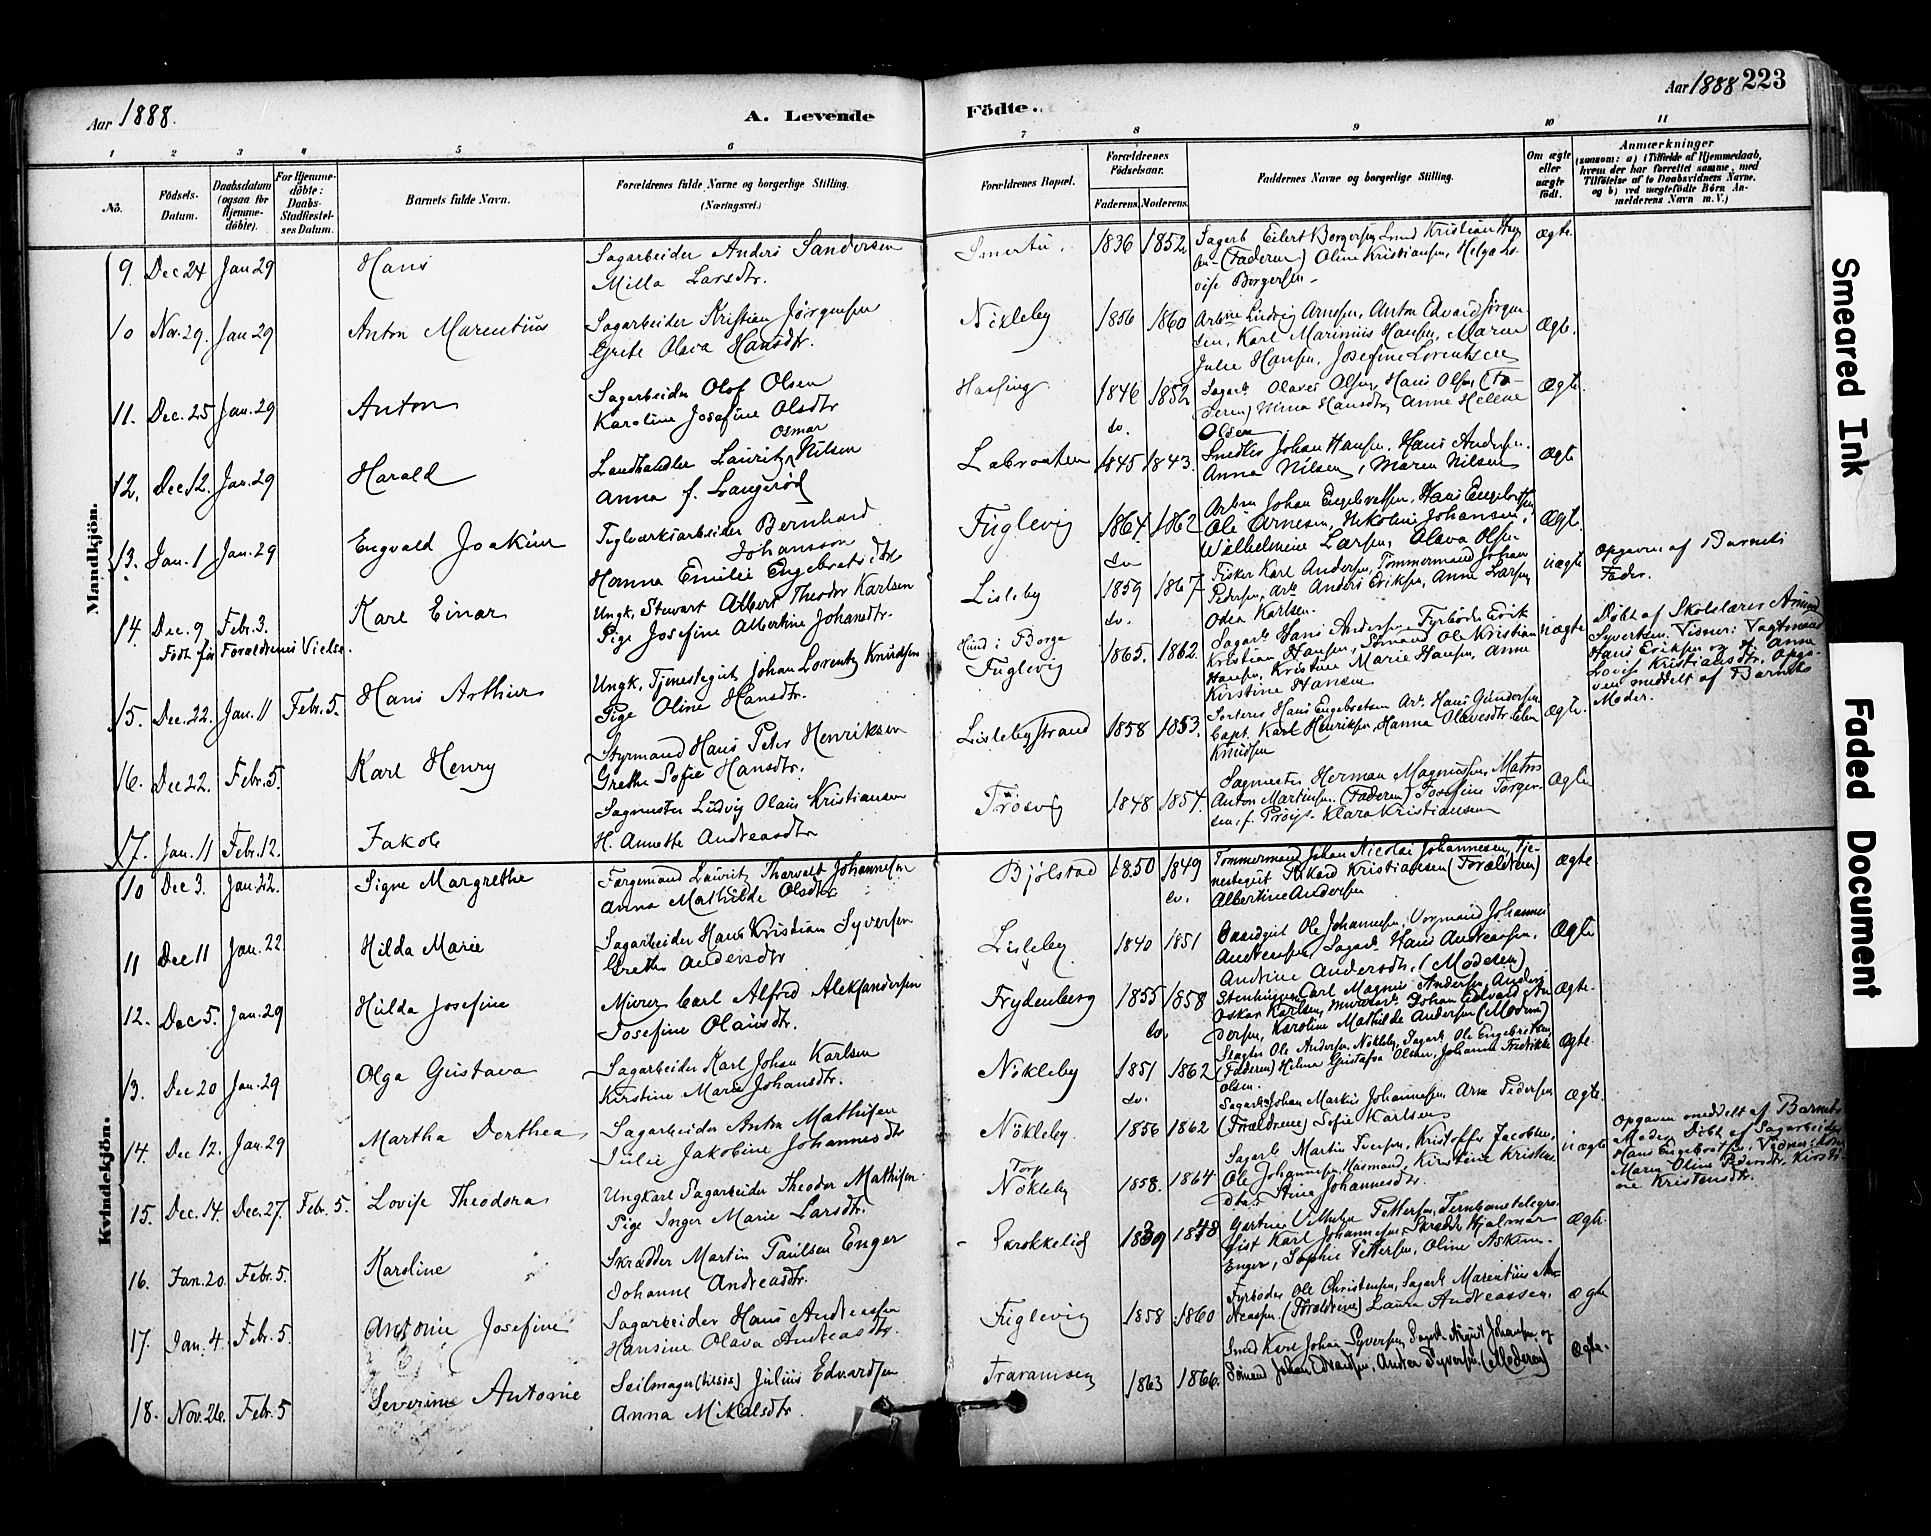 Aar 1888.
A. Levende
Födte.
Aar 1888 223
1 2 3 4 5 6 7 8 9 10 11
No.
Födsels-Datum.
Daabsdatum (ogsaa for Hjemme-döbte).
For Hjemme-döbte: Daabs-Stadfæstel-ses Datum.
Barnets fulde Navn.
Forældrenes fulde Navne og borgerlige Stilling. (Næringsvei.)
Forældrenes Bopæl.
Forældrenes Födselsaar.
Faderens. Moderens.
Faddernes Navne og borgerlige Stilling.
Om ægte eller uægte født.
Anmærkninger
(saasom: a) i Tilfælde af Hjemmedaab, hvem der har forrettet samme, med Tilföielse af to Daabsvidners Navne, og b) ved uægtefödte Börn Anmelderens Navn m.V.)
Mandkjön.
9. Dec 24 Jan 29 Hans
Sagarbeider Anders Sandersen
Milla Larsdtr.
Smertu. 1836 1852
Sagarb Eilert Borgersen, Smed Kristian
(Faderen) Oline Kristiansen, Helga Lo-
vise Borgersen
Ægte.
10 Nov. 29. Jan 29 Anton Marentius
Sagarbeider Kristian Jörgensen
Grete Olava Hansdtr.
Nökleby 1856 1860
Ludvig Arnesen, Anton Edvard Jörgen-
sen, Karl Marinius Hansen, Maren
Julie Hansen, Josefine Lorentsen
Ægte.
11. Dec. 25 Jan. 29 Anton
Sagarbeider Olof Olsen
Karoline Josefine Olsdtr
1846 1852
Sagarb. Olaves Olsen, Hans Olsen (Fa-
deren) Mina Hansdtr, Anne Helene
Olsen
Ægte.
12. Dec 12. Jan. 29 Harald
Osmar
Landhandler Lauritz Nilsen
Anna f. Langeröd
Labraaten 1845 1843.
Johan Hansen, Hans Andersen
Anna Nilsen, Maren Nilsen
Ægte
13. Jan. 1 Jan. 29 Engvald Joakim
Teglværksarbeider Bernhard
Johansson
Hanna Emilie Engebretsdtr
Fuglevig 1864 1862
Johan Engebretsen, Hans Engebretsen
Ole Arnesen, Nikoline Johansen,
Wilhelmine Larsen, Olava Olsen
Ægte.
14. Dec. 9 Febr. 3. Karl Einar
Födt för Forældrenes Vielse.
Ungk. Stewart Albert Theodor Karlsen
Pige Josefine Albertine Johansdtr.
Lisleby 1859 1867
Fisker Karl Andersen, Tömmermand Johan
Pedersen, arb. Anders Eriksen, Anne Larsen
Odea Karlsen.
uægte
Opgaven af Barnets
Fader.
15. Dec. 22. Jan. 11 Febr. 5. Hans Arthur
Ungk. Tjenestegut Johan Lorentz Knudsen
Pige Oline Hansdtr.
Lund i Borge
Fuglevig
1865. 1862
Sagarb. Hans Andersen, Fyrböder Erik
Kristian Hansen, Sömand Ole Kristian
Hansen, Kristine Marie Hansen, Anne
Kirstine Hansen
uægte
Döbt af Skolelærer Amund
Syvertsen. Vidner: Vagtmand
Hans Eriksen og H. Anna
Lovise Kristiansdtr. Opga-
ven meddelt af Barnets
Moder.
16. Dec 22. Febr. 5. Karl Henry
Styrmand Hans Peter Henriksen
Grethe Sofie Hansdtr.
Lislebystrand 1858 1853.
Sorterer Hans Engebretsen Arb. Hans Gundersen
Capt. Karl Henriksen, Hanna Olavesdtr
Knudsen
Ægte.
17. Jan. 11 Febr. 12. Jakob
Sagmester Ludvig Olaus Kristiansen
H. Annette Andreasdtr
Trosvig 1848 1854.
Sagmester Herman Magnussen, Matros
Anton Martinsen (Faderen) Josefine Torger-
sen, f. Klara Kristiansen
Ægte
Kvindekjön.
10 Dec 3. Jan. 22. Signe Margrethe
Færgemand Lauritz Tharvalt Johannesen
Anna Mathilde Olsdtr
Bjölstad 1850 1849
Tömmermand Johan Nicolai Johannesen, Tje-
nestegut Rikard Kristiansen (Forældrene)
Albertine Andersen
Ægte
11 Dec 11 Jan. 22 Hilda Marie
Sagarbeider Hans Kristian Syversen
Grethe Andersdtr
Lisleby 1840 1851
Ole Johannesen, Vognmand Johannes
Andreassen, Sagarb. Hans Andreassen,
Andrine Andersdtr. (Moderen)
Ægte
12. Dec 5. Jan. 29 Hulda Josefine
Murer Carl Alfred Aleksandersen
Josefine Olausdtr.
Frydenberg 1855 1858
Stenhugger Carl Magnus Andersen, Anders
Oskar Karlsen, Murerarb. Johan Edvard An-
dersen, Karoline Mathilde Andersen (Moderen)
Ægte.
13. Dec 20 Jan. 29 Olga Gustava
Sagarbeider Karl Johan Karlsen
Kirstine Marie Johansdtr.
Nökleby 1851 1862
Slagter Ole Andersen, Nökleby, Sagarb. Ole Engebretsen
(Faderen) Helene Gustafva Olsen, Johanne Fredrikke
Olsen.
Ægte.
14. Dec 12. Jan. 29 Martha Dorthea
Sagarbeider Anton Mathisen
Julie Jakobine Johannesdtr
Nökleby. 1856 1862
Sagarb. Johan Martin Johannesen, Arne Pedersen
(Forældrene) Sofie Karlsen
Ægte.
15. Dec. 14. Dec. 27. Febr. 5. Lovise Theodora
Ungkarl Sagarbeider Theodor Mathisen
Pige Inger Marie Larsdtr.
Torp
Nökleby
1858. 1864
Sagarb. Martin Iversen, Kristoffer Jacobsen,
Ole Johannesen, Kirstine Kristens-
Dtr, Stine Johannesdtr.
uægte
Opgaven meddelt af Barnets
Moder. Döbt af Sagarbeider
Hans Engebretsen, Vidner:
Maren Oline Pedersdtr, Kirsti-
ne Kristensdtr.
16. Jan. 20. Febr. 5. Karoline
Skrædder Martin Paulsen Enger
Johanne Andreasdtr.
Skrokkelid 1839 1848
Gartner Vilhelm Pettersen, Jernbanetelegra-
fist Karl Johannesen, Skrædder Hjalmar
Enger, Sophie Pettersen, Oline Askim.
Ægte.
17. Jan. 4. Febr. 5. Antonie Josefine
Sagarbeider Hans Andreassen
Hansine Olava Andreasdtr.
Fuglevig 1858 1860
Fyrböder Ole Christensen, Sagarb. Marentius An-
dreassen (Forældrene) Laura Andreassen,
Ægte
18. Nov. 26. Febr. 5 Severine Antonie
Seilmager (tilsös) Julius Edvardsen
Anna Mikalsdtr.
1863 1866.
Smed Karl Johan Syversen, Sagarb. August Johansen, og
Sömand Johan Edvardsen, Andrea Syversen. (Moderen)
Ægte.
Smeared Ink
Faded Document